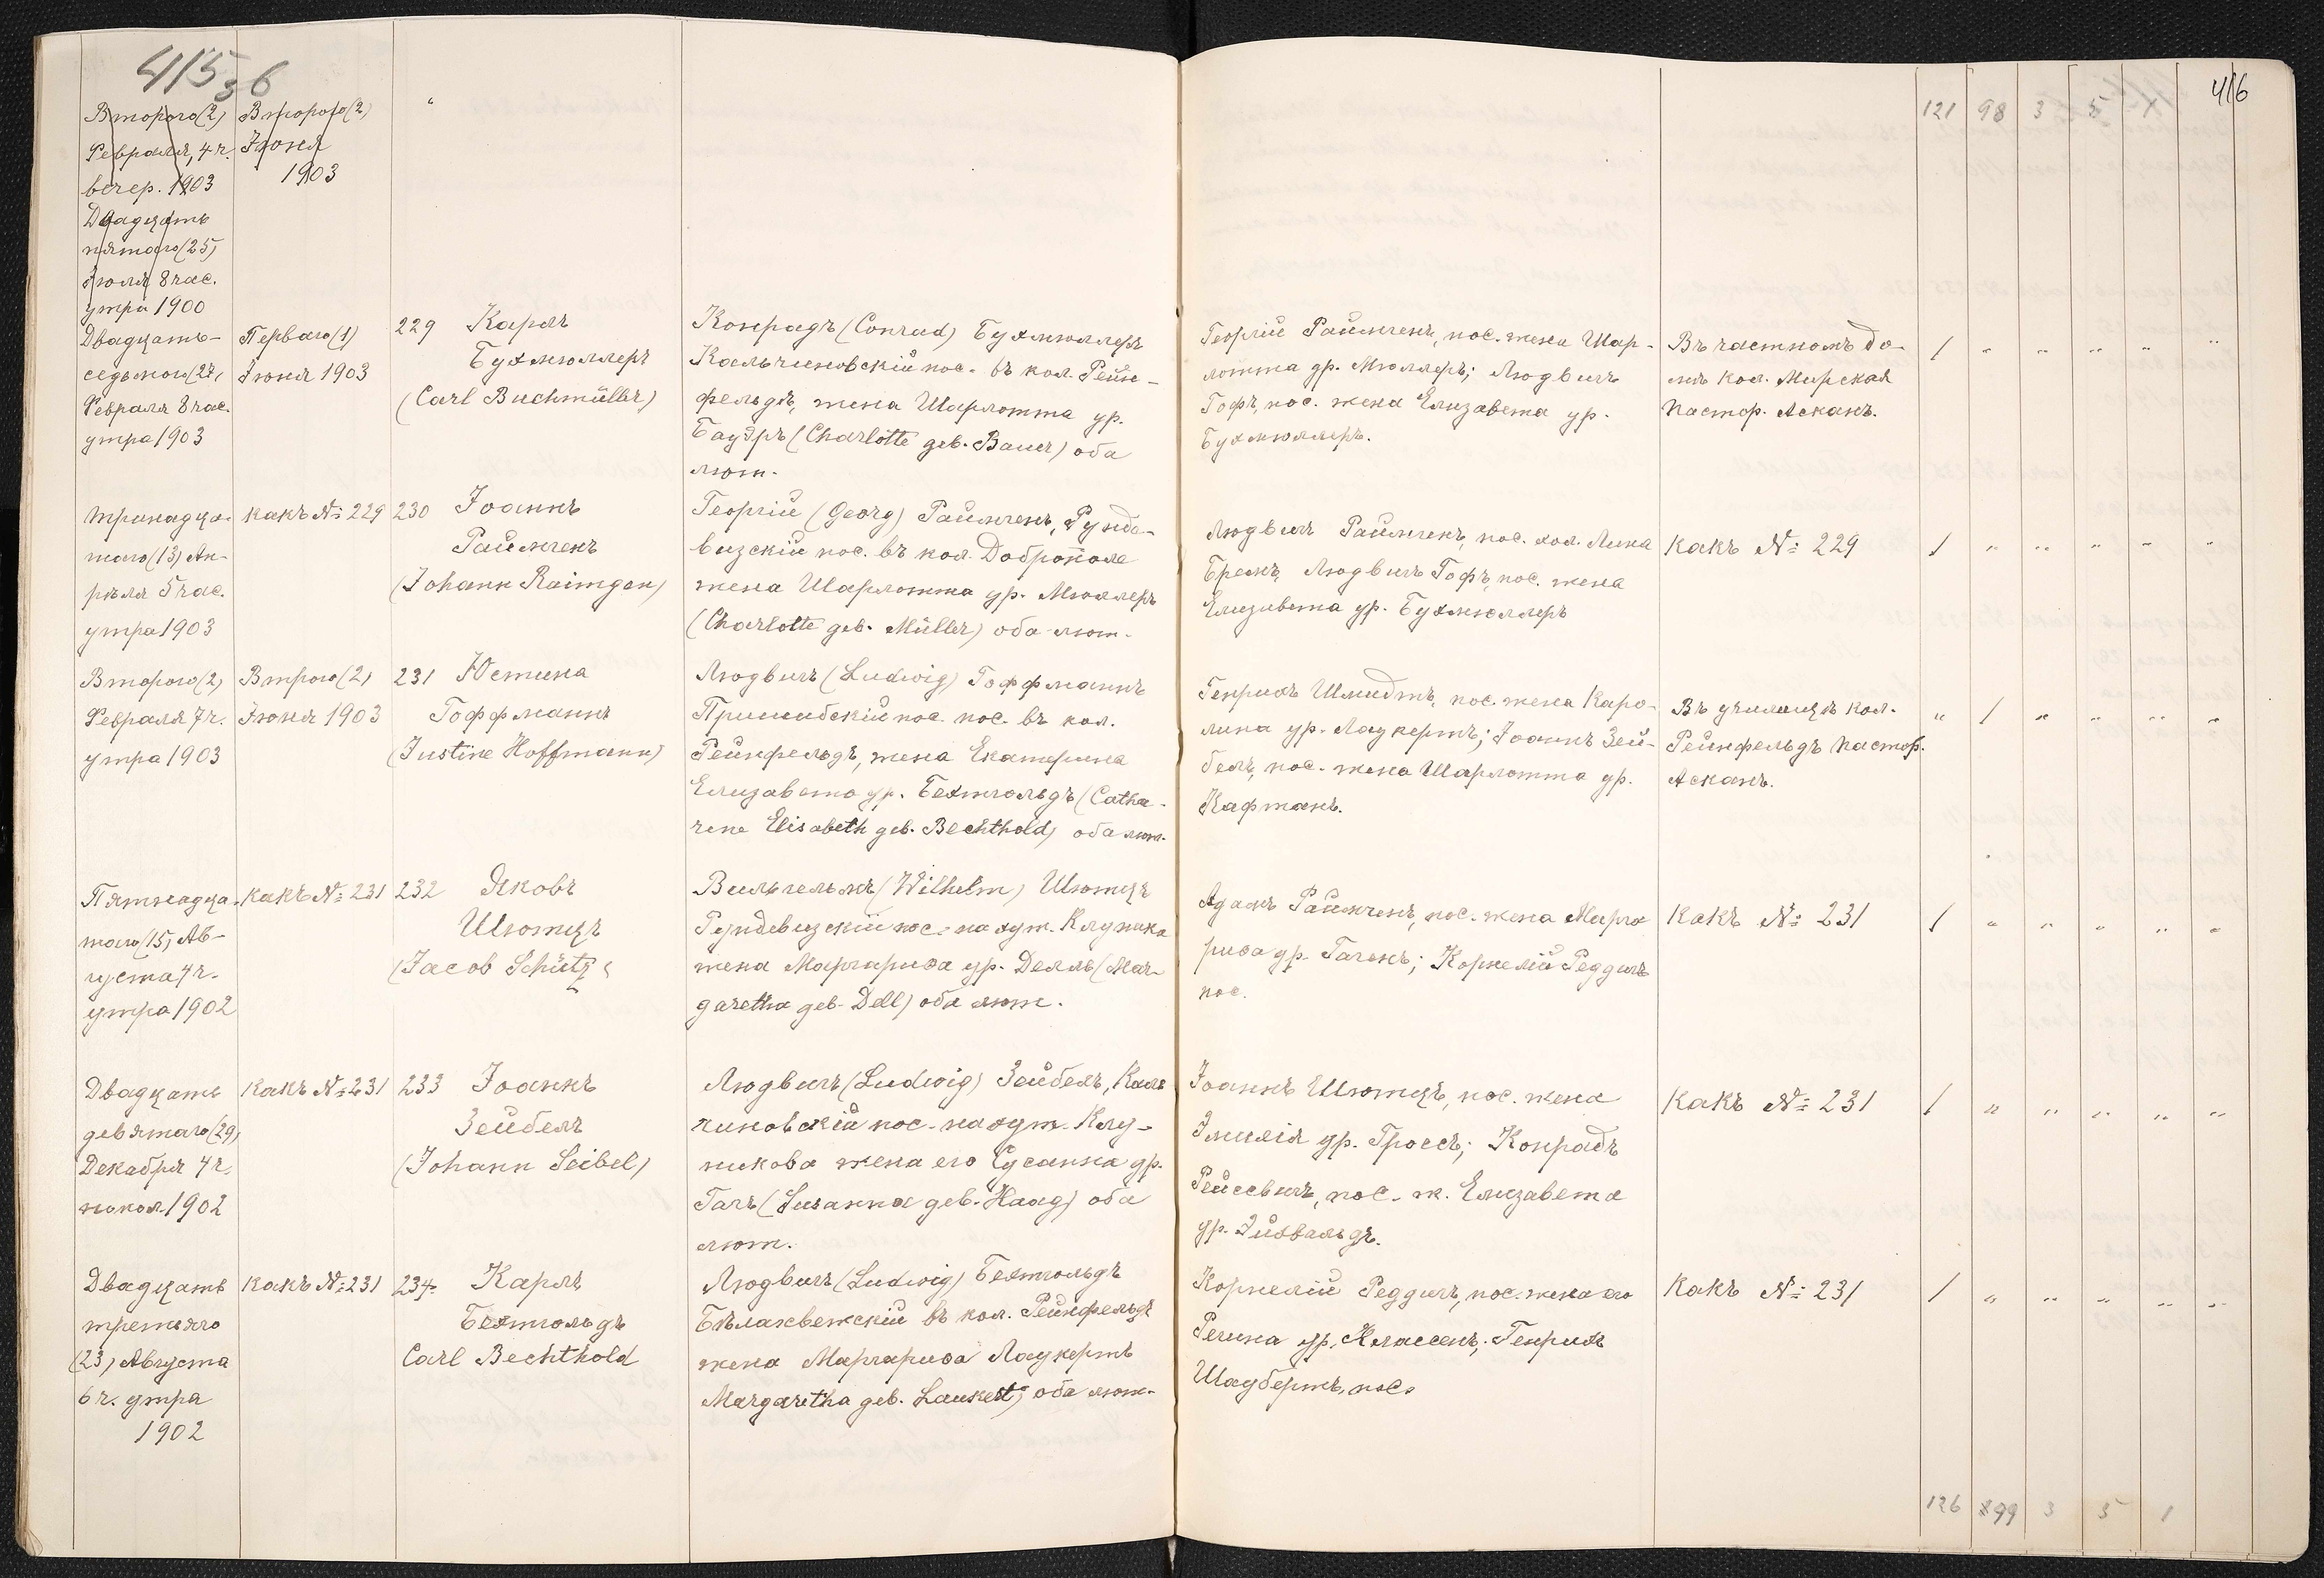 415 36
416
121 98 3 5 1
Второго (2)
Февраля, 4 ч.
вечер. 1903
Двадцать
пятаго (25)
Июля 8 час.
утра 1900
Второго (2)
Іюня
1903
Двадцать-
седьмого (27)
Февраля 8 час.
утра 1903
Перваго (1)
Іюня 1903
229 Карлъ
Бухмюллеръ
(Carl Buchmüller)
Конрадъ (Conrad) Бухмюллеръ
Кальчиновскій пос. въ кол. Рейн-
фельдъ, жена Шарлотта ур.
Бауэръ (Charlotte geb. Bauer) оба
лют.
Георгій Раймгенъ, пос. жена Шар-
лотта ур. Мюллеръ; Людвигъ
Гофъ, пос. жена Елизавета ур.
Бухмюллеръ.
Въ частномъ до-
мѣ кол. Мирская
Пастор. Асканъ.
1 " " " " "
Тринадца-
таго (13) Ап-
рѣля 5 час.
утра 1903
Какъ № 229
230 Іоаннъ
Раймгенъ
(Johann Raimgen)
Георгій (Georg) Раймгенъ, Рунде-
визскій пос. въ кол. Доброполе
жена Шарлотта ур. Мюллеръ
(Charlotte geb. Müller) оба лют.
Людвигъ Раймгенъ, пос. хол. Лина
Бремъ, Людвигъ Гофъ, пос. жена
Елизавета ур. Бухмюллеръ
Какъ № 229
1 " " " " "
Второго (2)
Февраля 7 ч.
утра 1903
Втрого (2)
Іюня 1903
231 Юстина
Гоффманнъ
(Justine Hoffmann)
Людвигъ (Ludwig) Гоффманнъ
Пришибскій пос. пос. въ кол.
Рейнфельдъ, жена Екатерина
Елизавета ур. Бехтгольдъ (Catha-
rene Elisabeth geb. Bechthold) оба лют.
Генрихъ Шмидтъ, пос. жена Каро-
лина ур. Лаукертъ; Іоаннъ Зей-
белъ, пос. жена Шарлотта ур.
Кафтанъ.
Въ училищѣ кол.
Рейнфельдъ Пастор.
Асканъ.
" 1 " " " "
Пятнадца-
таго (15) Ав-
густа 4 ч.
утра 1902
Какъ № 231
232 Яковъ
Шютцъ
(Jacob Schütz)
Вильгельмъ (Wilhelm) Шютцъ
Рундевизскій пос. на хут. Клуника
жена Маргариѳа ур. Делль (Mar-
garetha geb. Dell) оба лют.
Адамъ Раймгенъ, пос. жена Марга
риѳа ур. Гагенъ; Корнелій Реддигъ
пос.
Какъ № 231
1 " " " " "
Двадцать
девятаго (29)
Декабря 4 ч.
попол 1902
Какъ № 231
233 Іоаннъ
Зейбелъ
(Johann Seibel)
Людвигъ (Ludwig) Зейбелъ, Каль
чиновскій пос. на хут. Клу-
никова жена его Сусанна ур.
Гагъ (Susanna geb. Haag) оба
лют.
Іоаннъ Шютцъ, пос. жена
Эмилія ур. Гроссъ; Конрадъ
Рейсвихъ, пос. ж. Елизавета
ур. Эйхвальдъ.
Какъ № 231
1 " " " " "
Двадцать
третьяго
(23) Августа
6 ч. утра
1902
Какъ № 231
234 Карлъ
Бехтгольдъ
Carl Bechthold
Людвигъ (Ludwig) Бехтгольдъ
Бѣлажвежскій въ кол. Рейнфельдъ
жена Маргариѳа Лаукертъ
Margaretha geb. Laukert) оба лют.
Корнелій Реддигъ, пос. жена его
Регина ур. Классенъ; Генрихъ
Шаубертъ, пос.
Какъ № 231
1 " " " " "
126 99 3 5 1